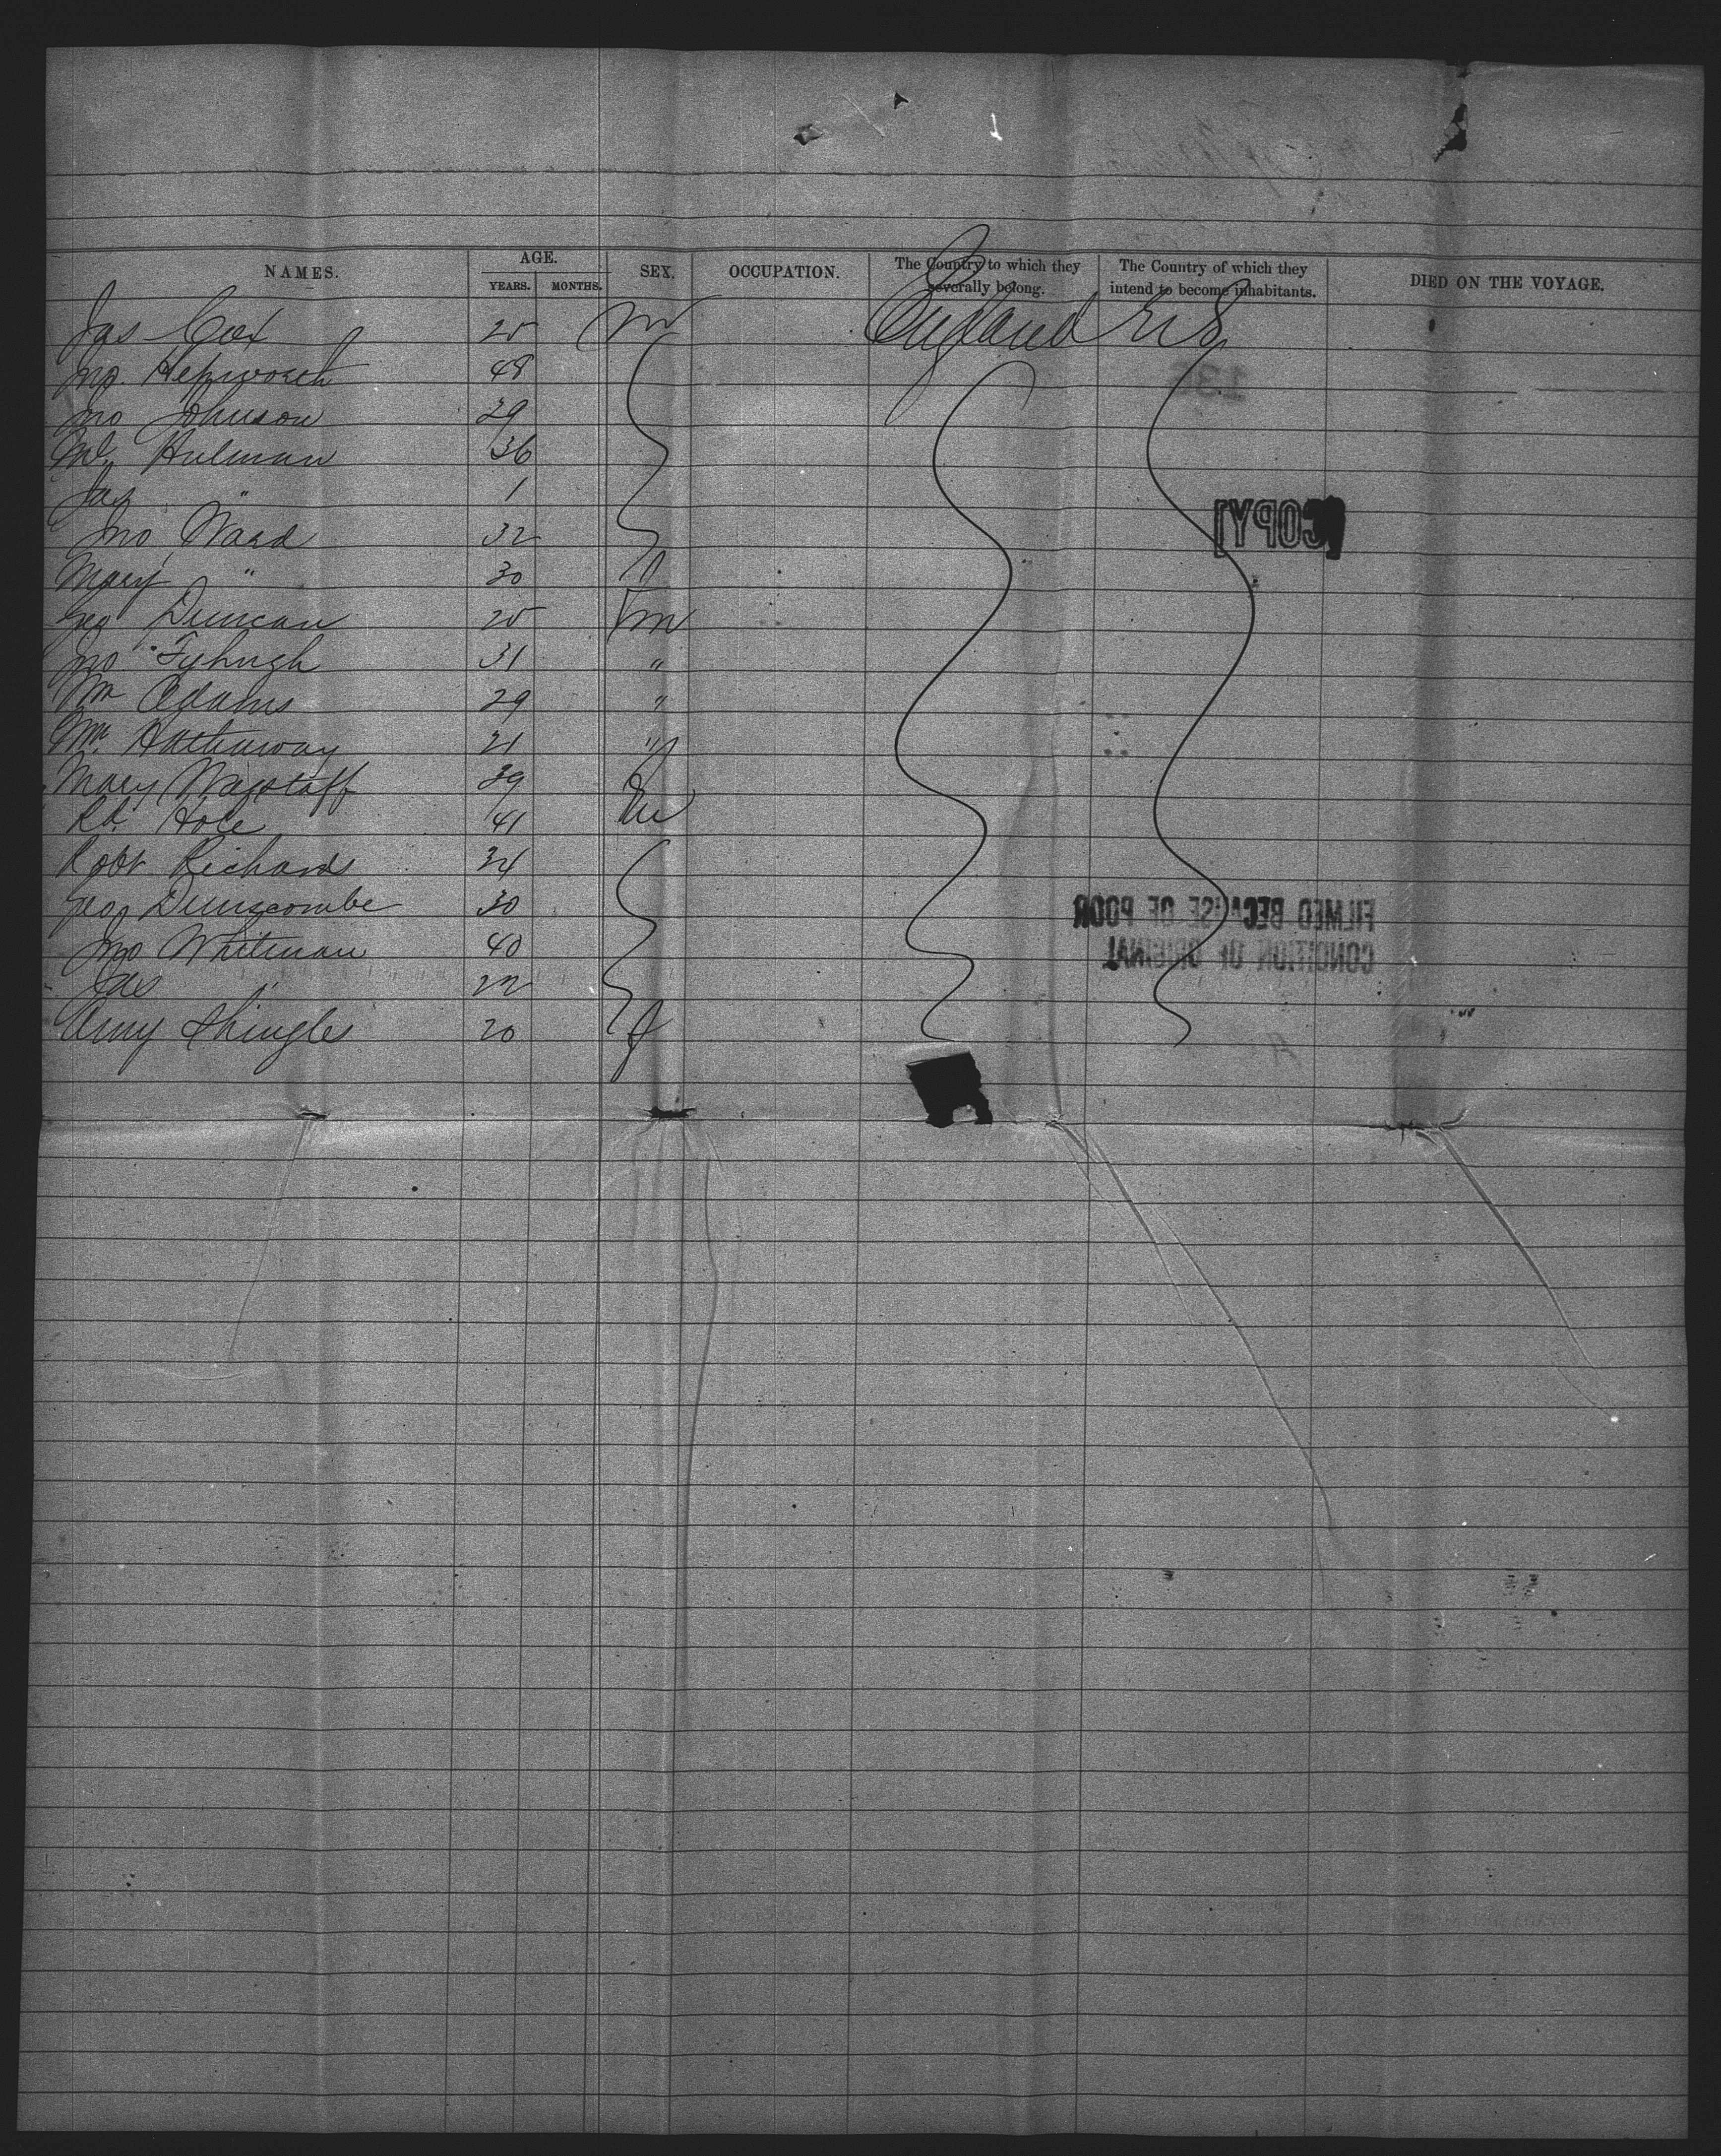 NAMES. AGE. YEARS. MONTHS. SEX. OCCUPATION. The Country to which they severally belong. The Country of which they intend to become inhabitants. DIED ON THE VOYAGE.
Jas Cox 25 m England U S
Jno. Hepworth 48
Jno Johnson 29
Hulman 36
Jas " 1
Jno Ward 32
Mary " 30 f
Geo Duncan 25 m
Jno 31 "
Wm Adams 29 "
Wm Hathaway 21 "
Mary Wagstaff 39 f
Rd. Hole 41 m
Robt Richards 34
Geo Dunscombe 30
Jno Whitman 40
Jas " 22
Amy Shingles 20 f
[COPY]
FILMED BECAUSE OF POOR
CONDITION OF ORIGINAL